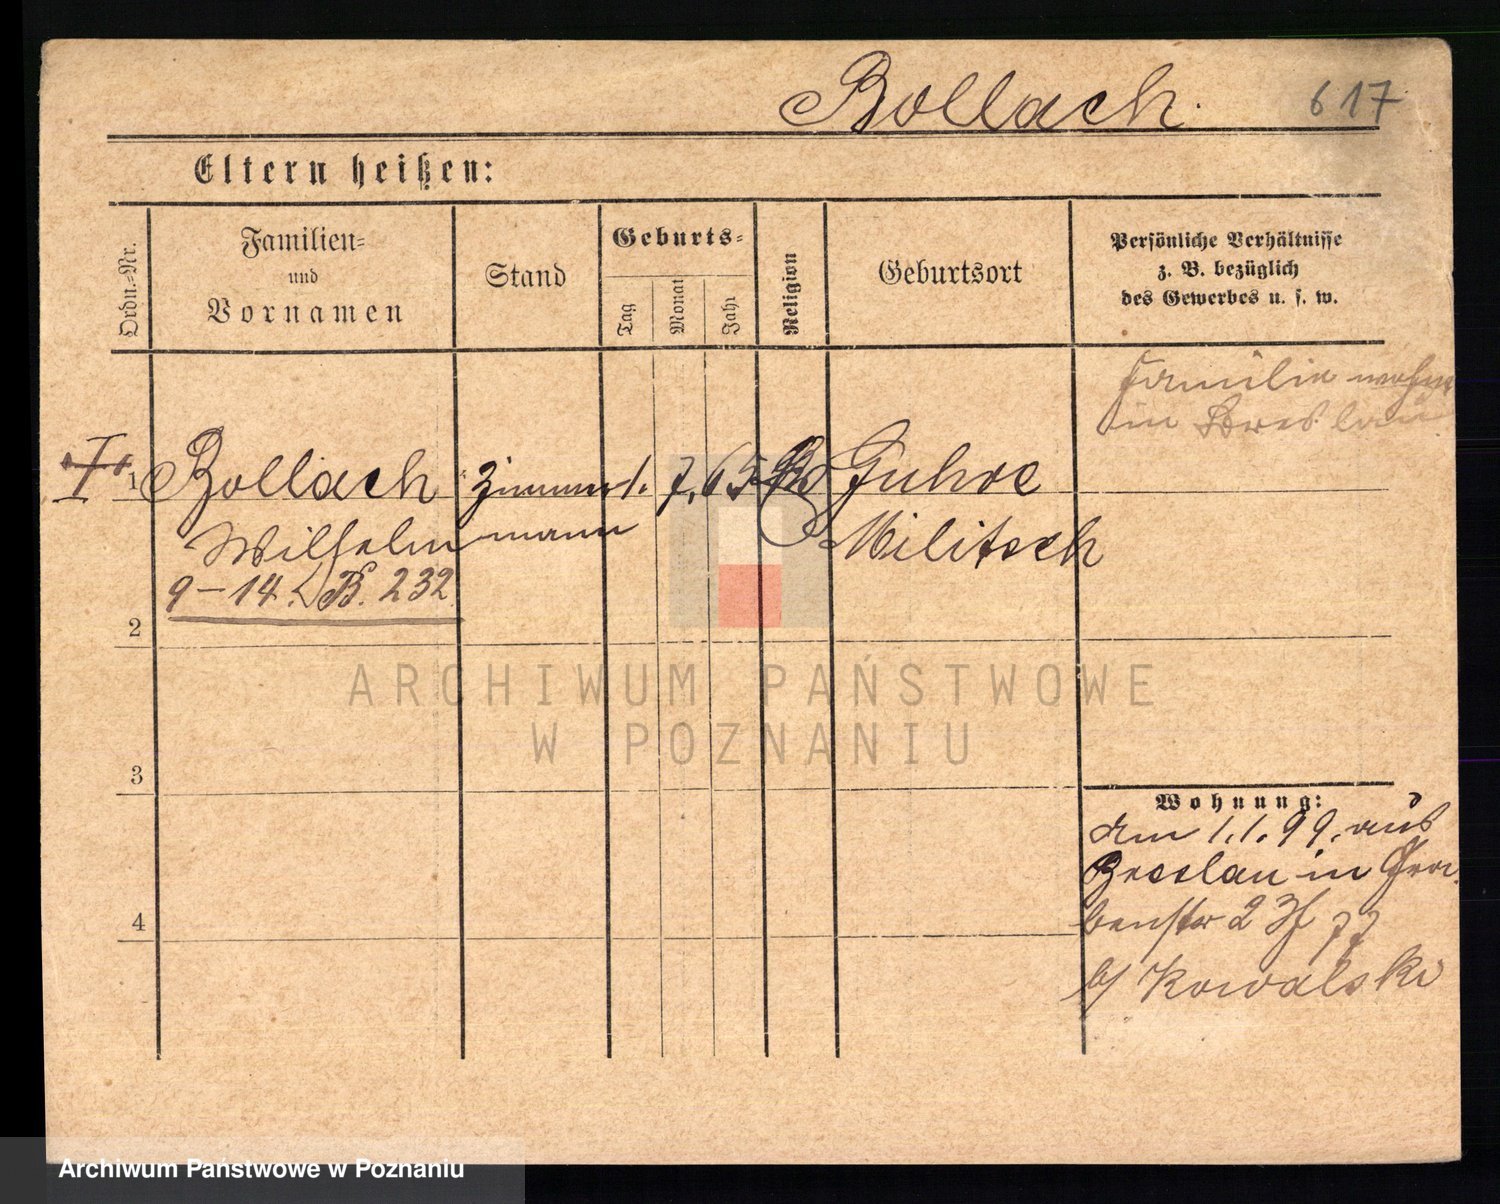 Bollach.
617
Eltern heißen:
Ordn.-Nr.
Familien-
und
Vornamen
Stand
Geburts-
Tag
Monat
Jahr
Religion
Geburtsort
Persönliche Verhältnisse
z. B. bezüglich
des Gewerbes u. s. w.
Familie wohnt
in Breslau
1 Bollach Zimmer 1. 7. 65 Guhre
Wilhelm mann Militsch
9-14. B. 232.
2
3
4
Wohnung:
Am 1.1.99. aus
Breslau in Gra-
benstr 2
b/ Kowalski
ARCHIWUM PAŃSTWOWE
W POZNANIU
Archiwum Państwowe w Poznaniu